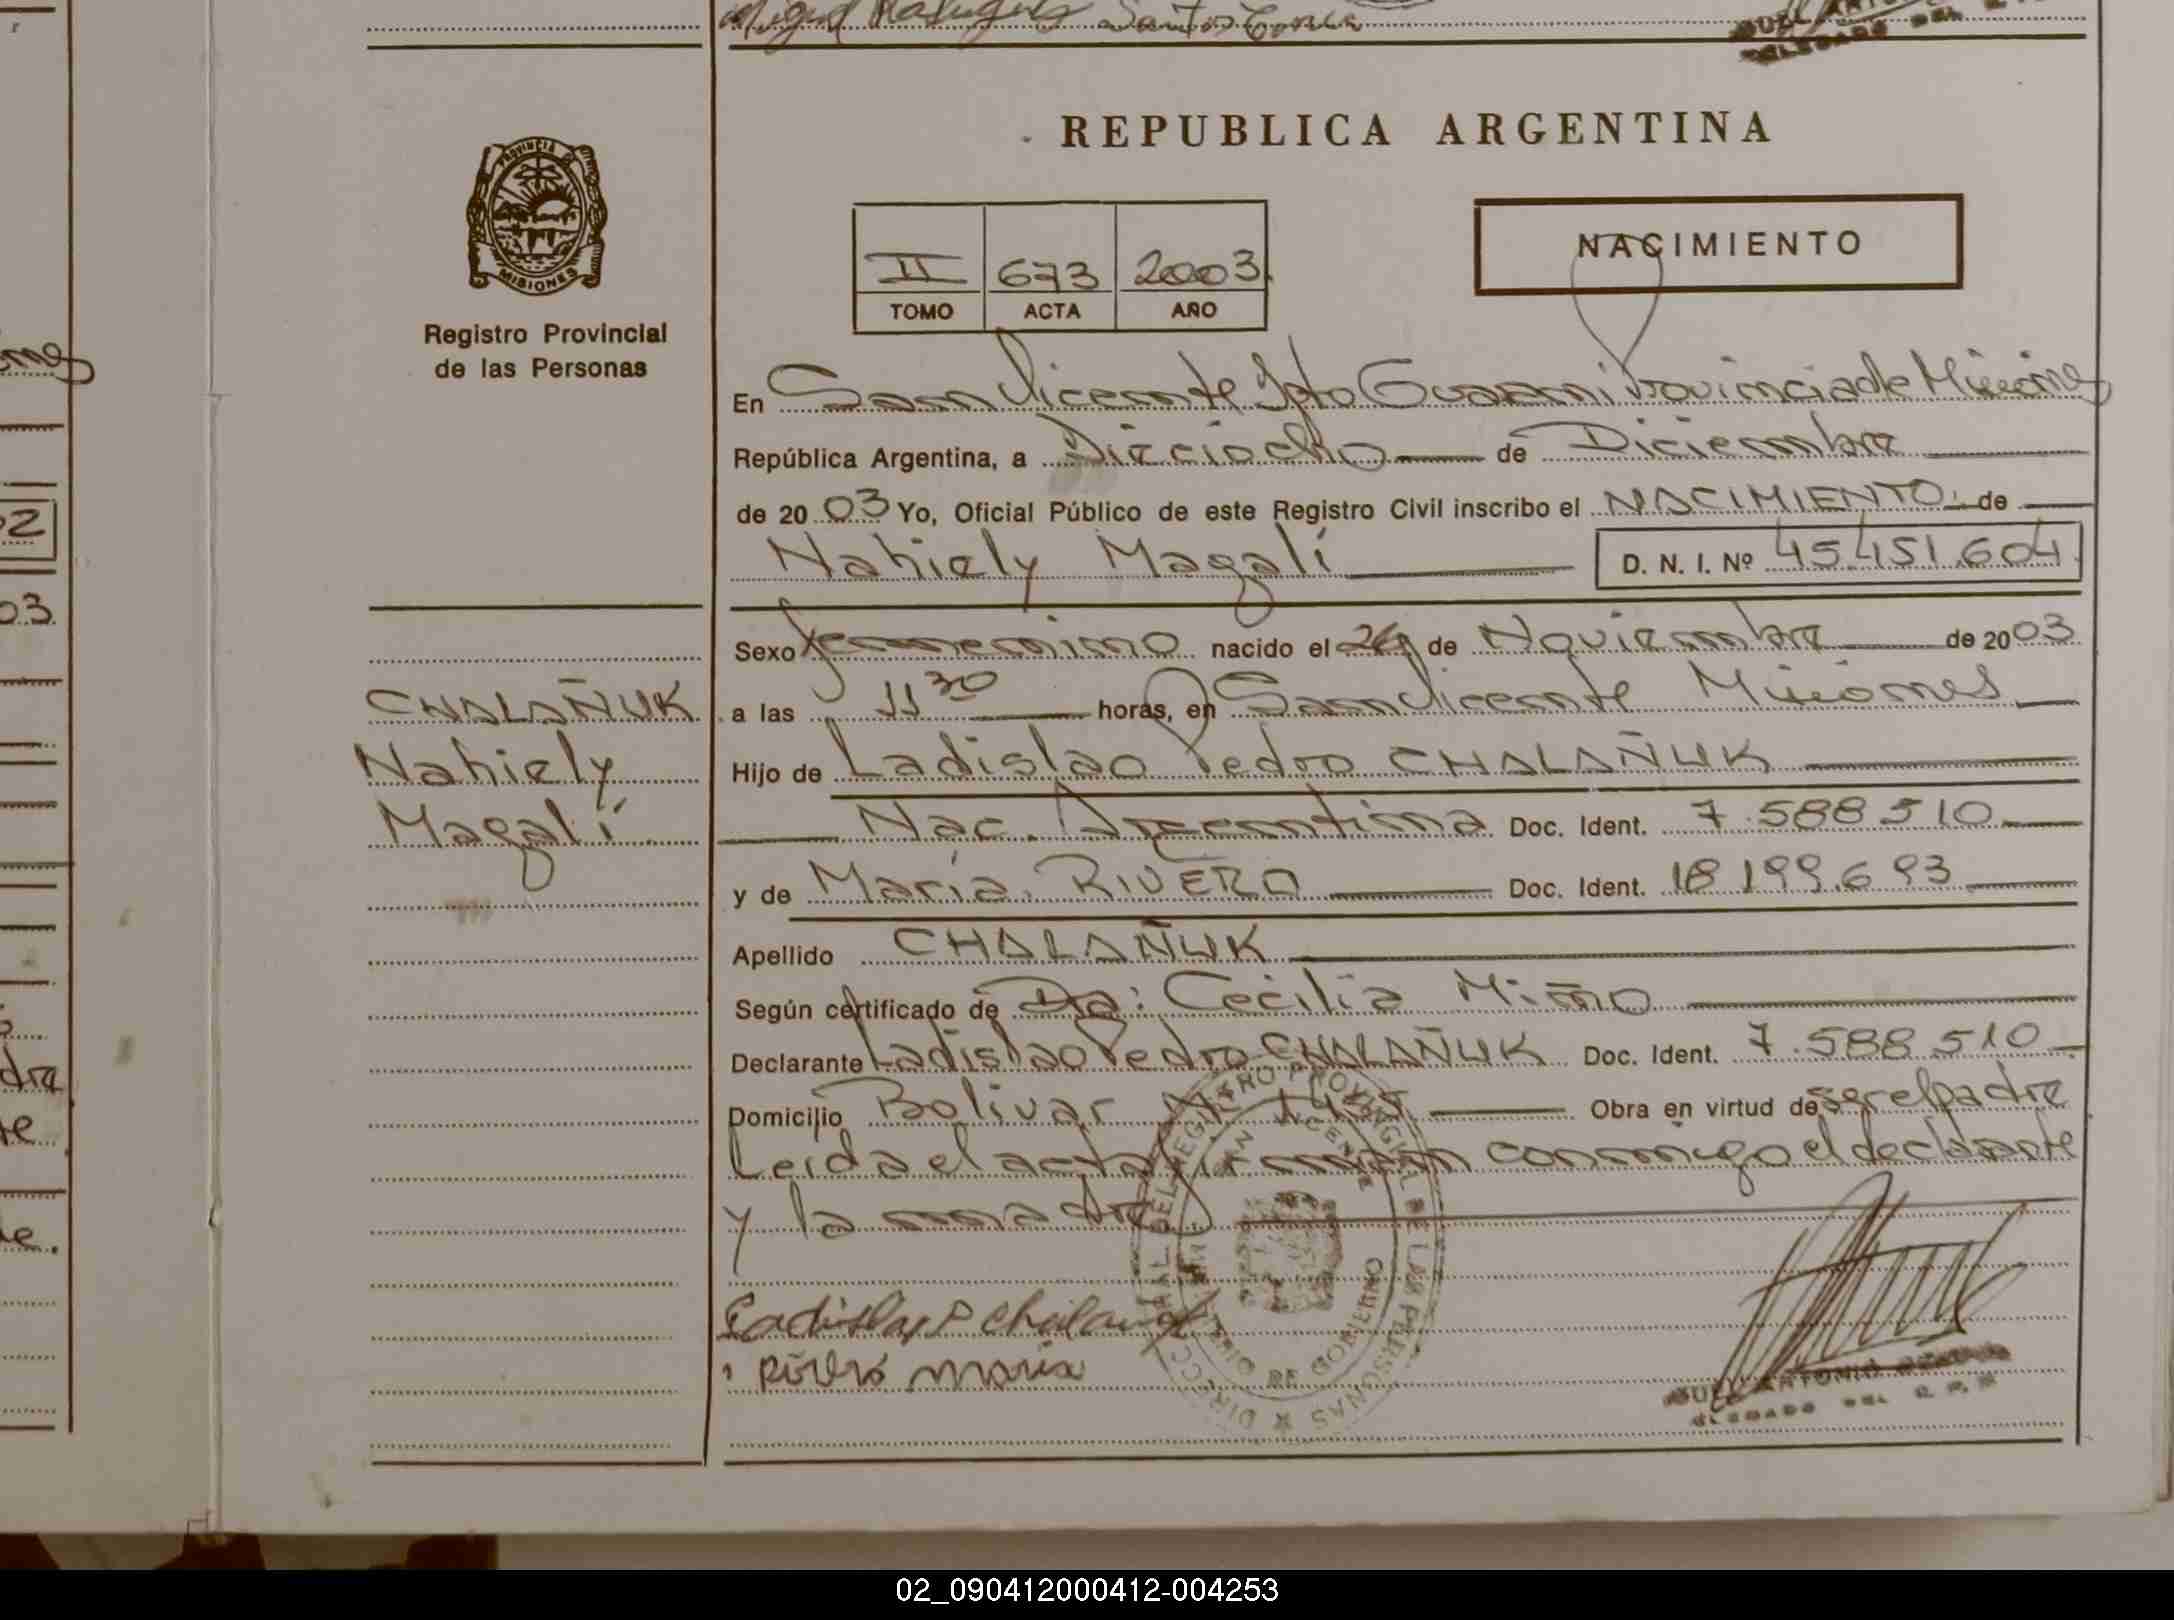 REPUBLICA ARGENTINA
PROVINCIA DE
MISIONES
Registro Provincial
de las Personas
II 673 2003
TOMO ACTA AÑO
NACIMIENTO
En San Vicente Dpto Guaraní Provincia de Misiones
República Argentina, a Dieciocho de Diciembre
de 2003 Yo, Oficial Público de este Registro Civil inscribo el NACIMIENTO de
Nahiely Magalí D. N. I. Nº 45.451.604
Sexo femenino nacido el de Noviembre de 2003
CHALAÑUK
Nahiely
Magalí
a las 11 30 horas, en San Vicente Misiones
Hijo de Ladislao Pedro CHALAÑUK
Nac. Argentina Doc. Ident. 7.588 510
y de María RIVERO Doc. Ident. 18 199.693
Apellido CHALAÑUK
Según certificado de Da: Cecilia Miño
Declarante Ladislao Pedro CHALAÑUK Doc. Ident. 7.588 510
Domicilio Bolivar Obra en virtud de ser el padre
Leida el acta firman conmigo el declarante
y la madre
Ladislao P Chalanuk
maria
ANTONIO
DEL R. P. P.
02_090412000412-004253